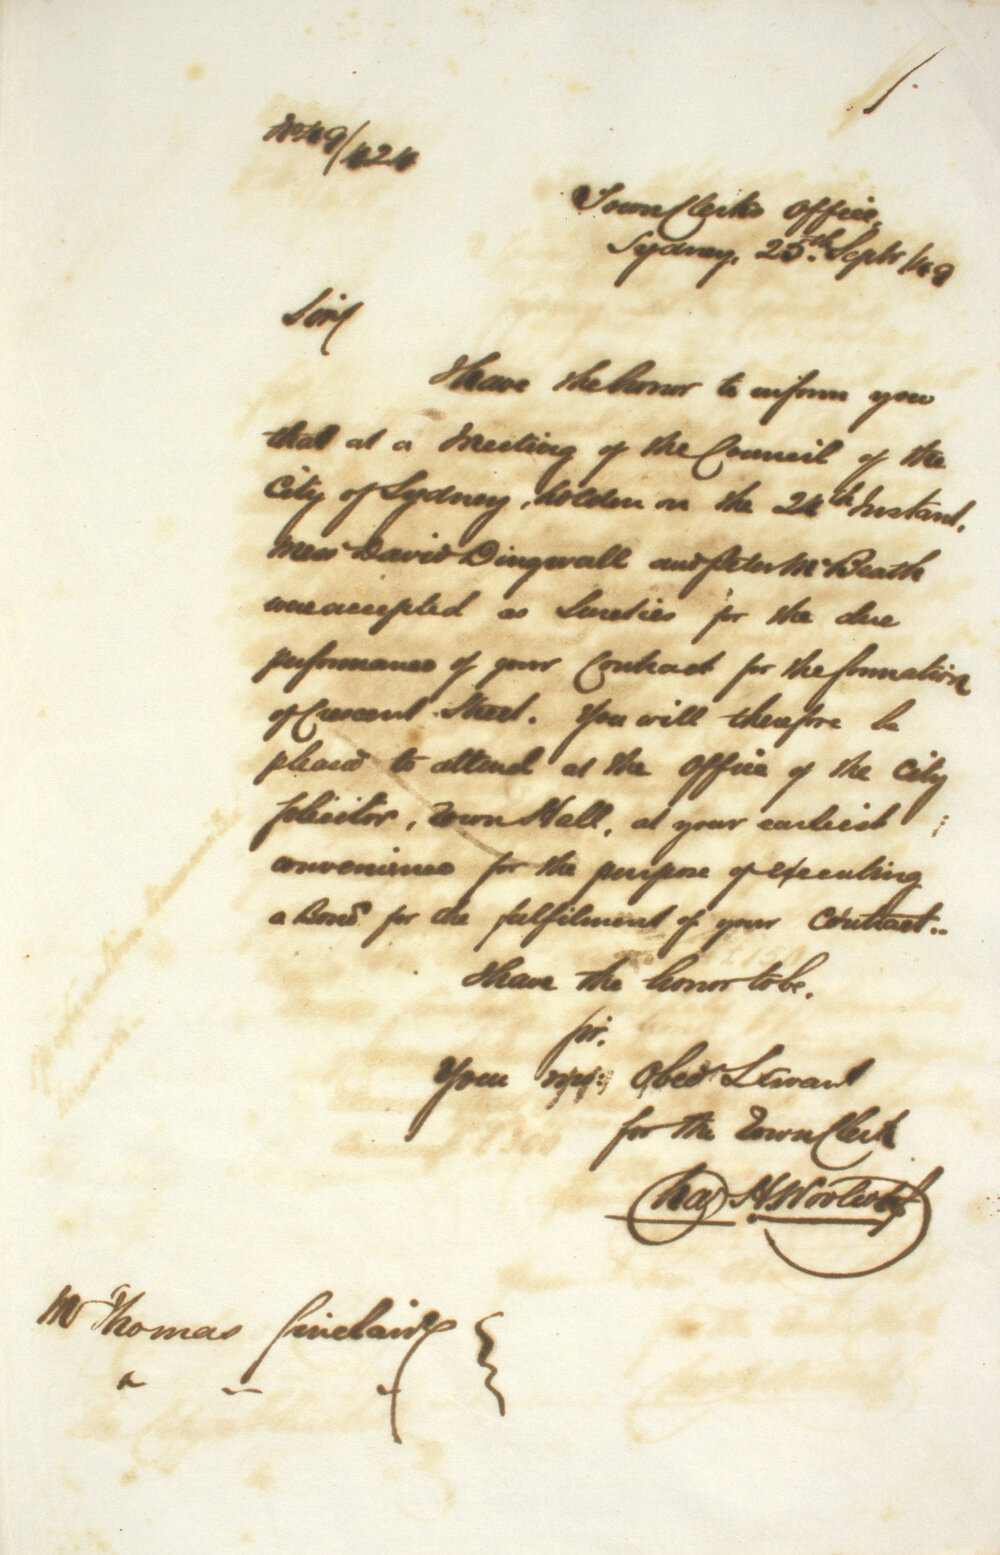 No 49/424
Town Clerks Office,
Sydney, 25th Septr /49
Sir
I have the honor to inform you
that at a Meeting of the Council of the
City of Sydney, holden on the 24th Instant,
Messrs David Dingwall and Peter McBeath
were accepted as Sureties for the due
performance of your Contract for the formation
of Crescent Street. You will therefore be
pleased to attend at the Office of the City
Solicitor, Town Hall, at your earliest
convenience for the purpose of executing
a Bond for the fulfilment of your Contract..
I have the honor to be,
Sir,
Your Obedt Servant
for the Town Clerk
Chas H Woolcott
Mr Thomas Sinclair
" " "